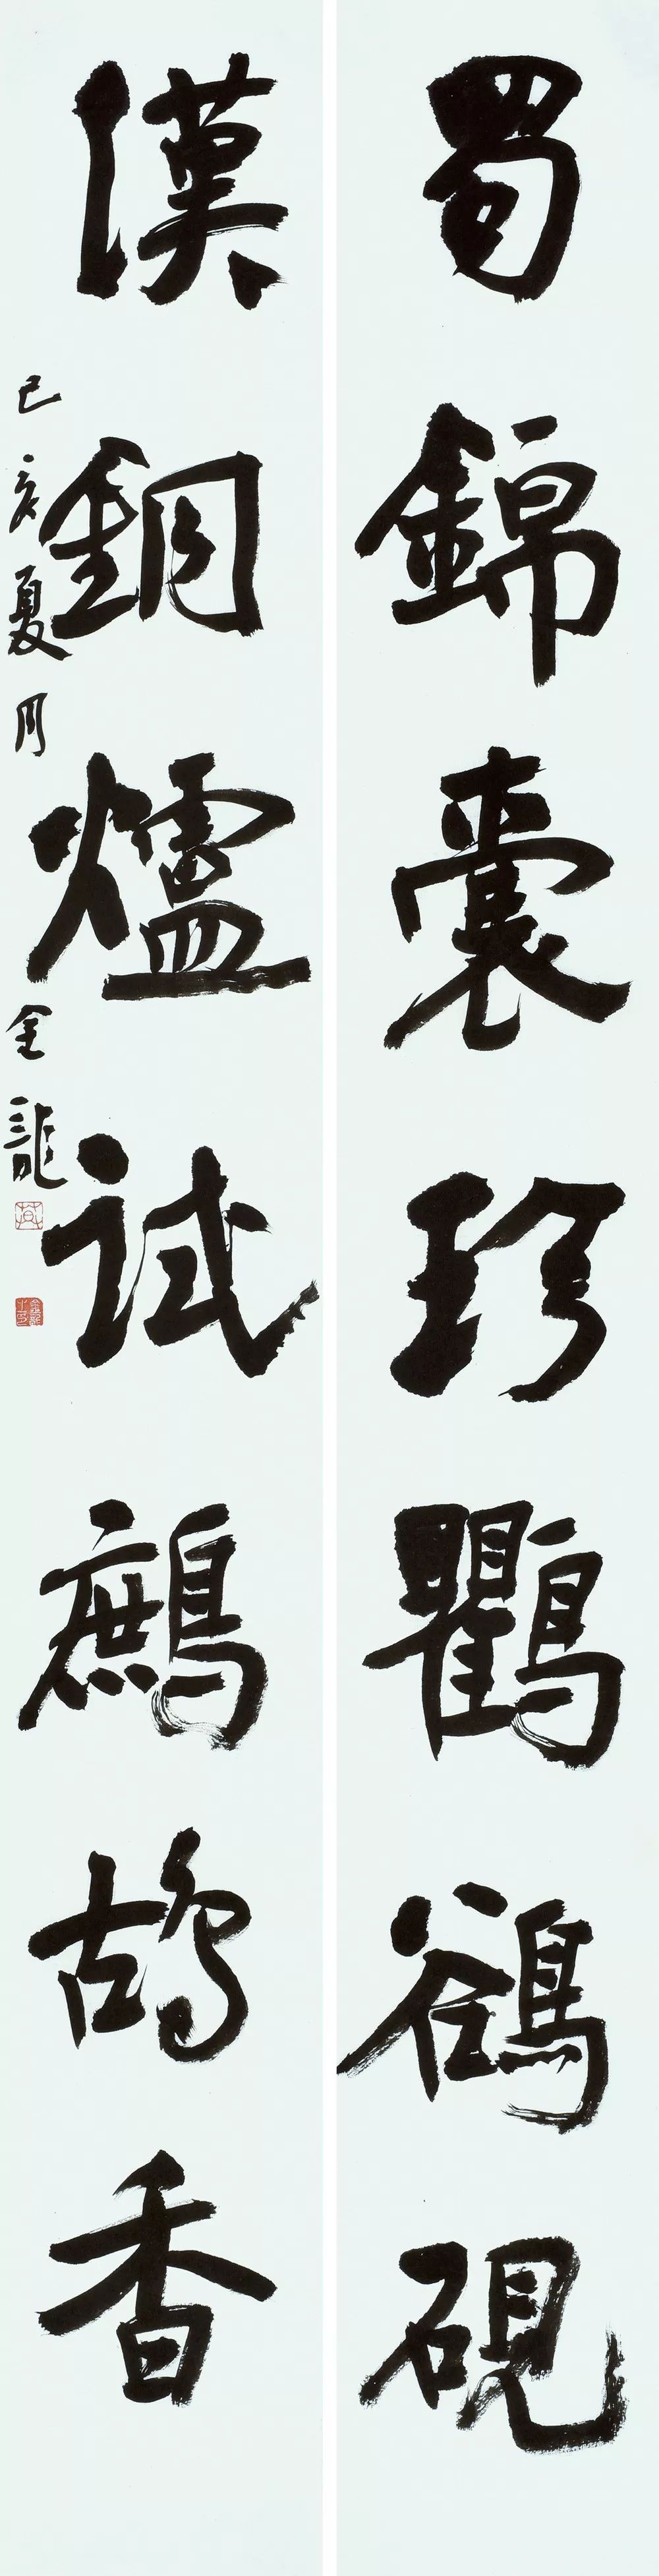 蜀錦囊珍鸜鵒硯
漢銅爐試鷓鴣香
己亥夏月 金龍